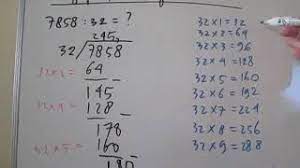 7858:32=?
245,
32/7858
32x2= 64
145
32x4= 128
178
32x5= 160
180
32x1=32
32x2=64
32x3=96
32x4=128
32x5=160
32x6=192
32x7=224
32x8=256
32x9=288